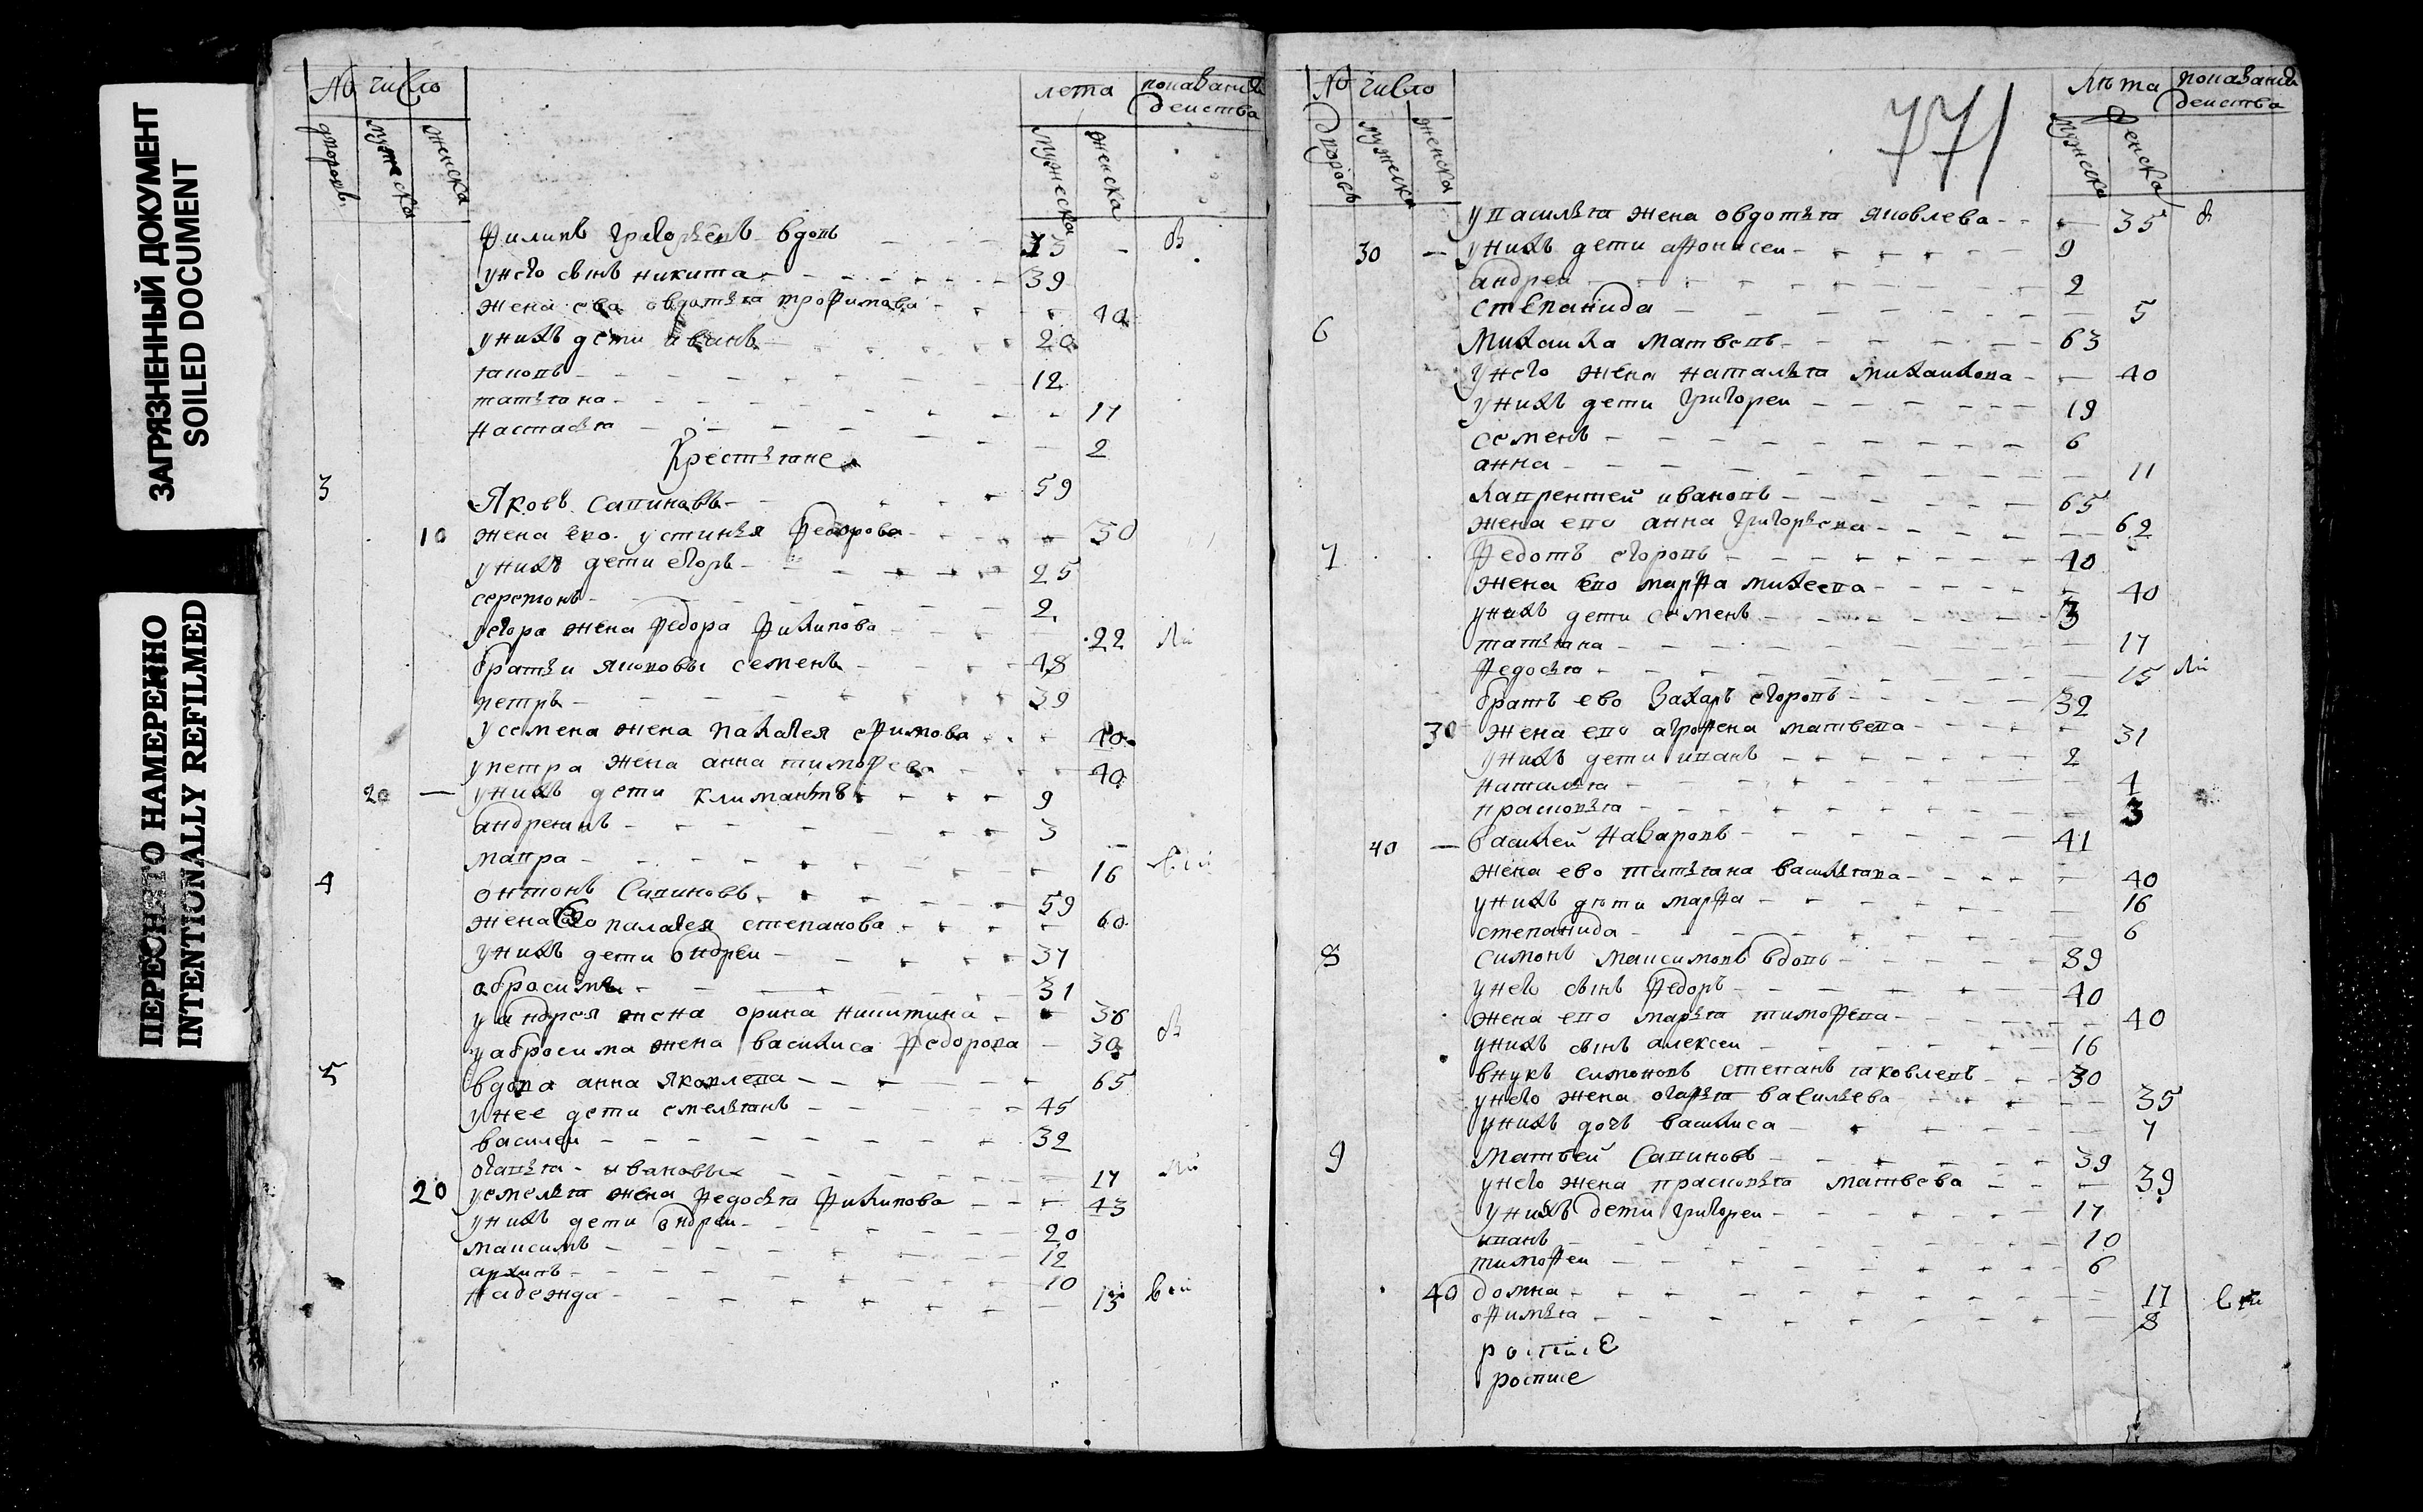 ЗАГРЯЗНЕННЫЙ ДОКУМЕНТ
SOILED DOCUMENT
ПЕРЕСНЯТО НАМЕРЕННО
INTENTIONALLY REFILMED
№ число лета показание
действа
дворовъ мужеска женска мужеска женска
Филипъ Григорьевъ вдовъ 73 - в
у него сынъ никита 39
жена ева овдотья трофимова 40
у нихъ дети иванъ 20
яковъ 12
татьяна 17
настасья 2
Крестьяне
3 Яковъ Савиновъ 59
10 жена ево устинья федорова 50
у нихъ дети егоръ 25
2
у егора жена федора филипова 22 ли
братьи яковы семенъ 48
петръ 39
у семена жена палагея ефимова 40
у петра жена анна тимофеева 40
20 — у нихъ дети климантъ 9
андреянъ 3
мавра 16
4 онтонъ Савиновъ 59
жена ево палагея степанова 60
у нихъ дети ондреи 37
абросимъ 31
у андрея жена орина никитина 36
у абросима жена василиса федорова 30 в
5 вдова анна яковлева 65
у нее дети емельянъ 45
василеи 32
огафья ивановы 17 ли
20 у емельяна жена федосья филипова 43
у нихъ дети ондреи 20
максимъ 12
архипъ 10
надежда 13 в ли
№ число 771 лѣта показание
действа
дворовъ мужеска женска мужеска женска
у василья жена овдотья яковлева 35 в
30 — у нихъ дети афонасеи 9
андреи 2
степанида 5
6 михаила матвевъ 63
у него жена наталья михаилова 40
у нихъ дети григореи 19
семенъ 6
анна 11
лаврентей ивановъ 65
жена ево анна григорьева 62
7 федотъ егоровъ 40
жена ево марфа михеева 40
у нихъ дети семенъ 3
татьяна 17
федосья 15 ли
братъ ево захаръ егоровъ 32
30 жена ево агрофена матвева 31
у нихъ дети иванъ 2
наталья 4
прасковья 3
40 — василей назаровъ 41
жена ево татьяна васильева 40
у нихъ дѣти марфа 16
степанида 6
8 симонъ максимовъ вдовъ 89
у него сынъ федоръ 40
жена ево марья тимофева 40
у нихъ сынъ алексеи 16
внукъ симоновъ степанъ яковлевъ 30
у него жена огафья василева 35
у нихъ дочь василиса 7
9 матвей Савиновъ 39
у него жена прасковья матвева 39
у нихъ дети григореи 17
иванъ 10
тимофеи 6
40 домна 17 в ли
офимья 8
росписе
росписе